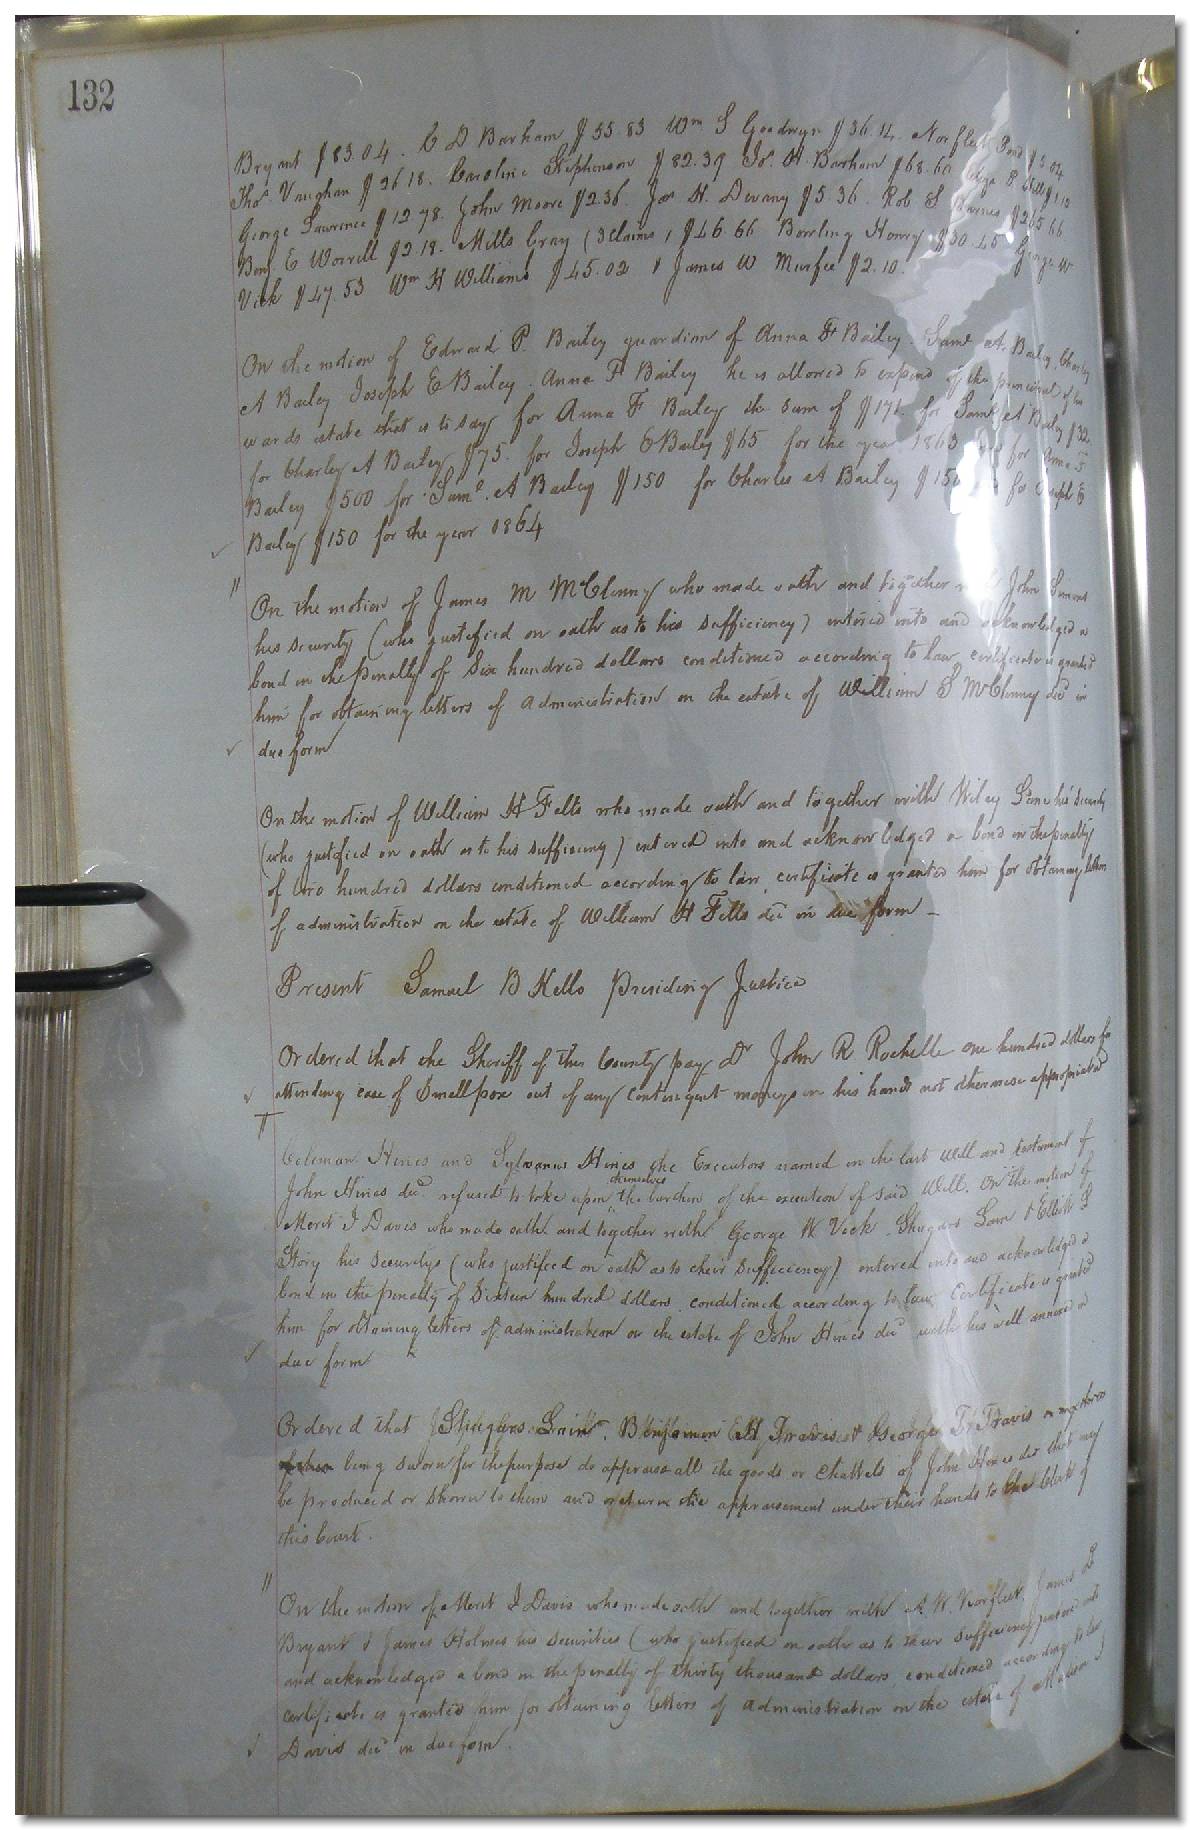 132
Bryant $83.04. C D Barham $55.83 Wm S Goodwyn $36.14. Norfleet Pond $3.04
Thos Vaughan $26.18. Caroline Stephenson $82.39 Jos. H. Barham $68.60
George Lawrence $12.78. John Moore $2.36. Jas H. Devany $5.36. Rob S Barnes $265.66
Benj. E Worrell $2.19. Mills Gray (3 claims) $46.66 Bowling Henry $30.45 George W
Vick $47.53 Wm H Williams $45.02 & James W Murfee $2.10.
On the motion of Edward P. Bailey guardian of Anna F Bailey. Saml A. Bailey, Charley
A Bailey Joseph E Bailey. Anna F Bailey he is allowed to expend of the principal of his
wards estate that is to say for Anna F Bailey the sum of $171. for Saml A Bailey $32.
for Charley A Bailey $75. for Joseph E Bailey $65 for the year 1863 for Anna F
Bailey $500 for Saml. A Bailey $150 for Charles A Bailey $150 for Joseph E
Bailey $150 for the year 1864
" On the motion of James M McClenny who made oath and together with John Simons
his security (who justified on oath as to his sufficiency) entered into and acknowledged a
bond in the penalty of Six hundred dollars conditioned according to law certificate is granted
him for obtaining letters of administration on the estate of William S McClenny decd in
due form
On the motion of William H Felts who made oath and together with Wiley his security
(who justified on oath as to his sufficiency) entered into and acknowledged a bond in the penalty
of two hundred dollars conditioned according to law, certificate is granted him for obtaining letters
of administration on the estate of William H Felts decd in due form –
Present Samuel B Kello Presiding Justice
Ordered that the Sheriff of this County pay Dr John R Rochelle one hundred dollars for
attending case of Smallpox out of any contingent moneys in his hands not otherwise appropriated
Coleman Hines and Sylvanus Hines the Executors named in the last Will and testament of
John Hines decd. refused to take upon themselves the burden of the execution of said Will. On the motion of
Merit J Davis who made oath and together with George W Vick. Shugars Lain & Elliott S
Story his securitys (who justified on oath as to their sufficiency) entered into and acknowledged a
bond in the penalty of Sixteen hundred dollars, conditioned according to law, Certificate is granted
him for obtaining letters of administration on the estate of John Hines decd with his will annexed in
due form
Ordered that Shugars Lain, Benjamin E H Travis & George T Travis
being sworn for the purpose do appraise all the goods or chattels of John Hines decd that may
be produced or shown to them and return the appraisement under their hands to the Clerk of
this Court.
" On the motion of Merit J Davis who made oath and together with A. W. Norfleet. James D
Bryant & James Holmes his securities (who justified on oath as to their sufficiency) entered into
and acknowledged a bond in the penalty of thirty thousand dollars, conditioned according to law
certificate is granted him for obtaining letters of administration on the estate of
Davis decd in due form.